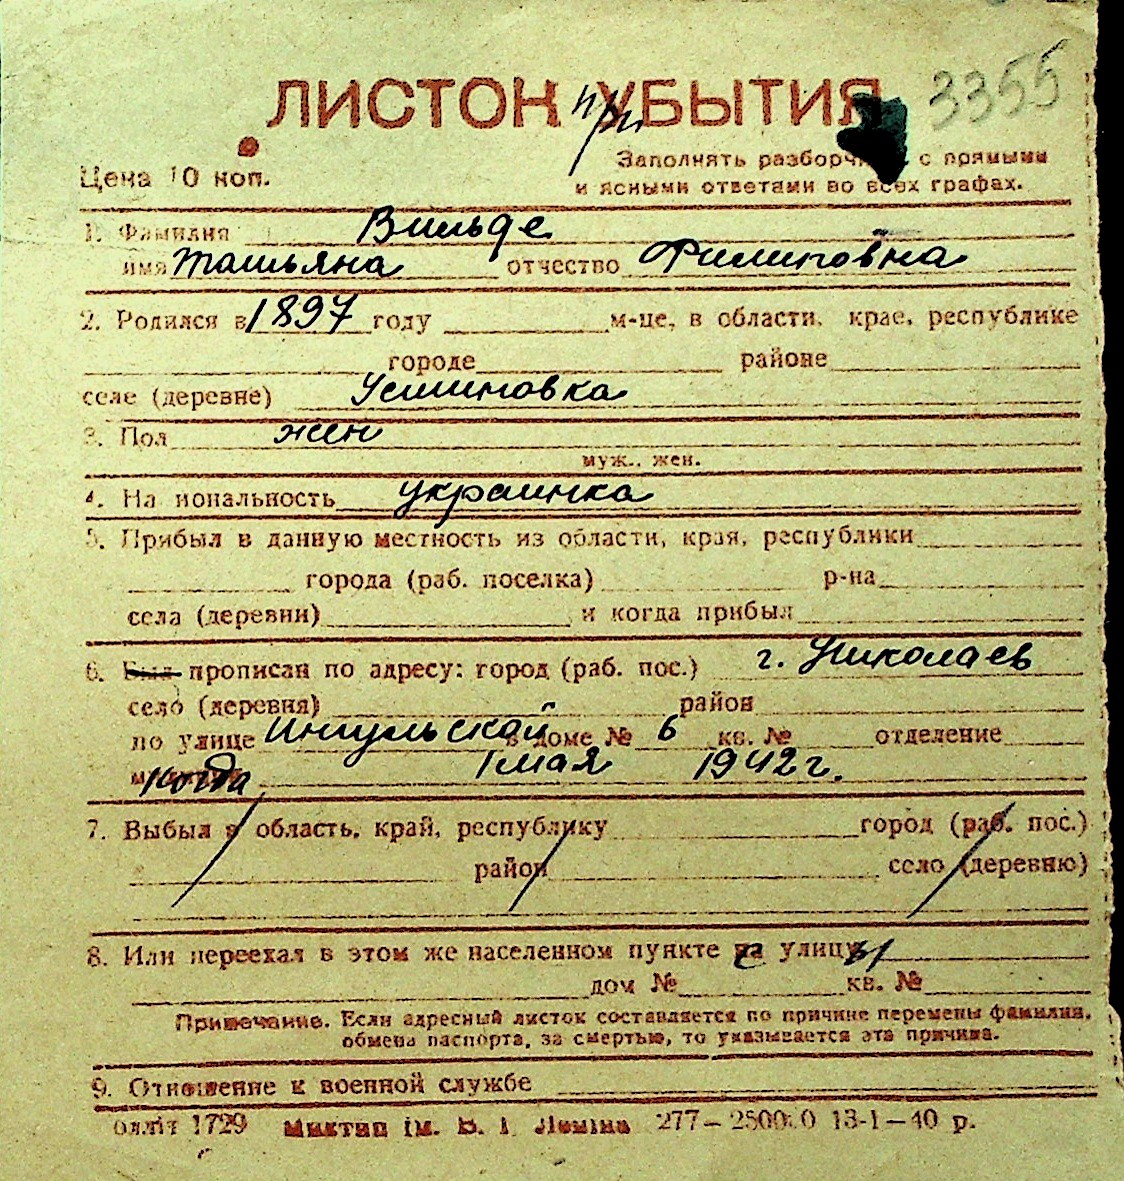 3355
ЛИСТОК при УБЫТИЯ
Цена 10 коп.
Заполнять разборчи с прямыми
и ясными ответами во всех графах.
1. Фамилия Вильде
имя Татьяна отчество Филиповна
2. Родился в 1897 году м-це, в области, крае, республике
городе районе
селе (деревне) Устиновка
3. Пол жен
муж., жен.
4. На иональность украинка
5. Прибыл в данную местность из области, края, республики
города (раб. поселка) р-на
села (деревни) и когда прибыл
6. Был прописан по адресу: город (раб. пос.) г. Николаев
село (деревня) район
по улице Ингульской в доме № 6 кв. № отделение
когда 1 мая 1942 г.
7. Выбыл в область, край, республику город (раб. пос.)
район село (деревню)
8. Или переехал в этом же населенном пункте с улицы
дом № кв. №
Примечание. Если адресный листок составляется по причине перемены фамилии,
обмена паспорта, за смертью, то указывается эта причина.
9. Отношение к военной службе
олліт 1729 Миктип ім. В. І. Леніна 277—25000 13-1—40 р.